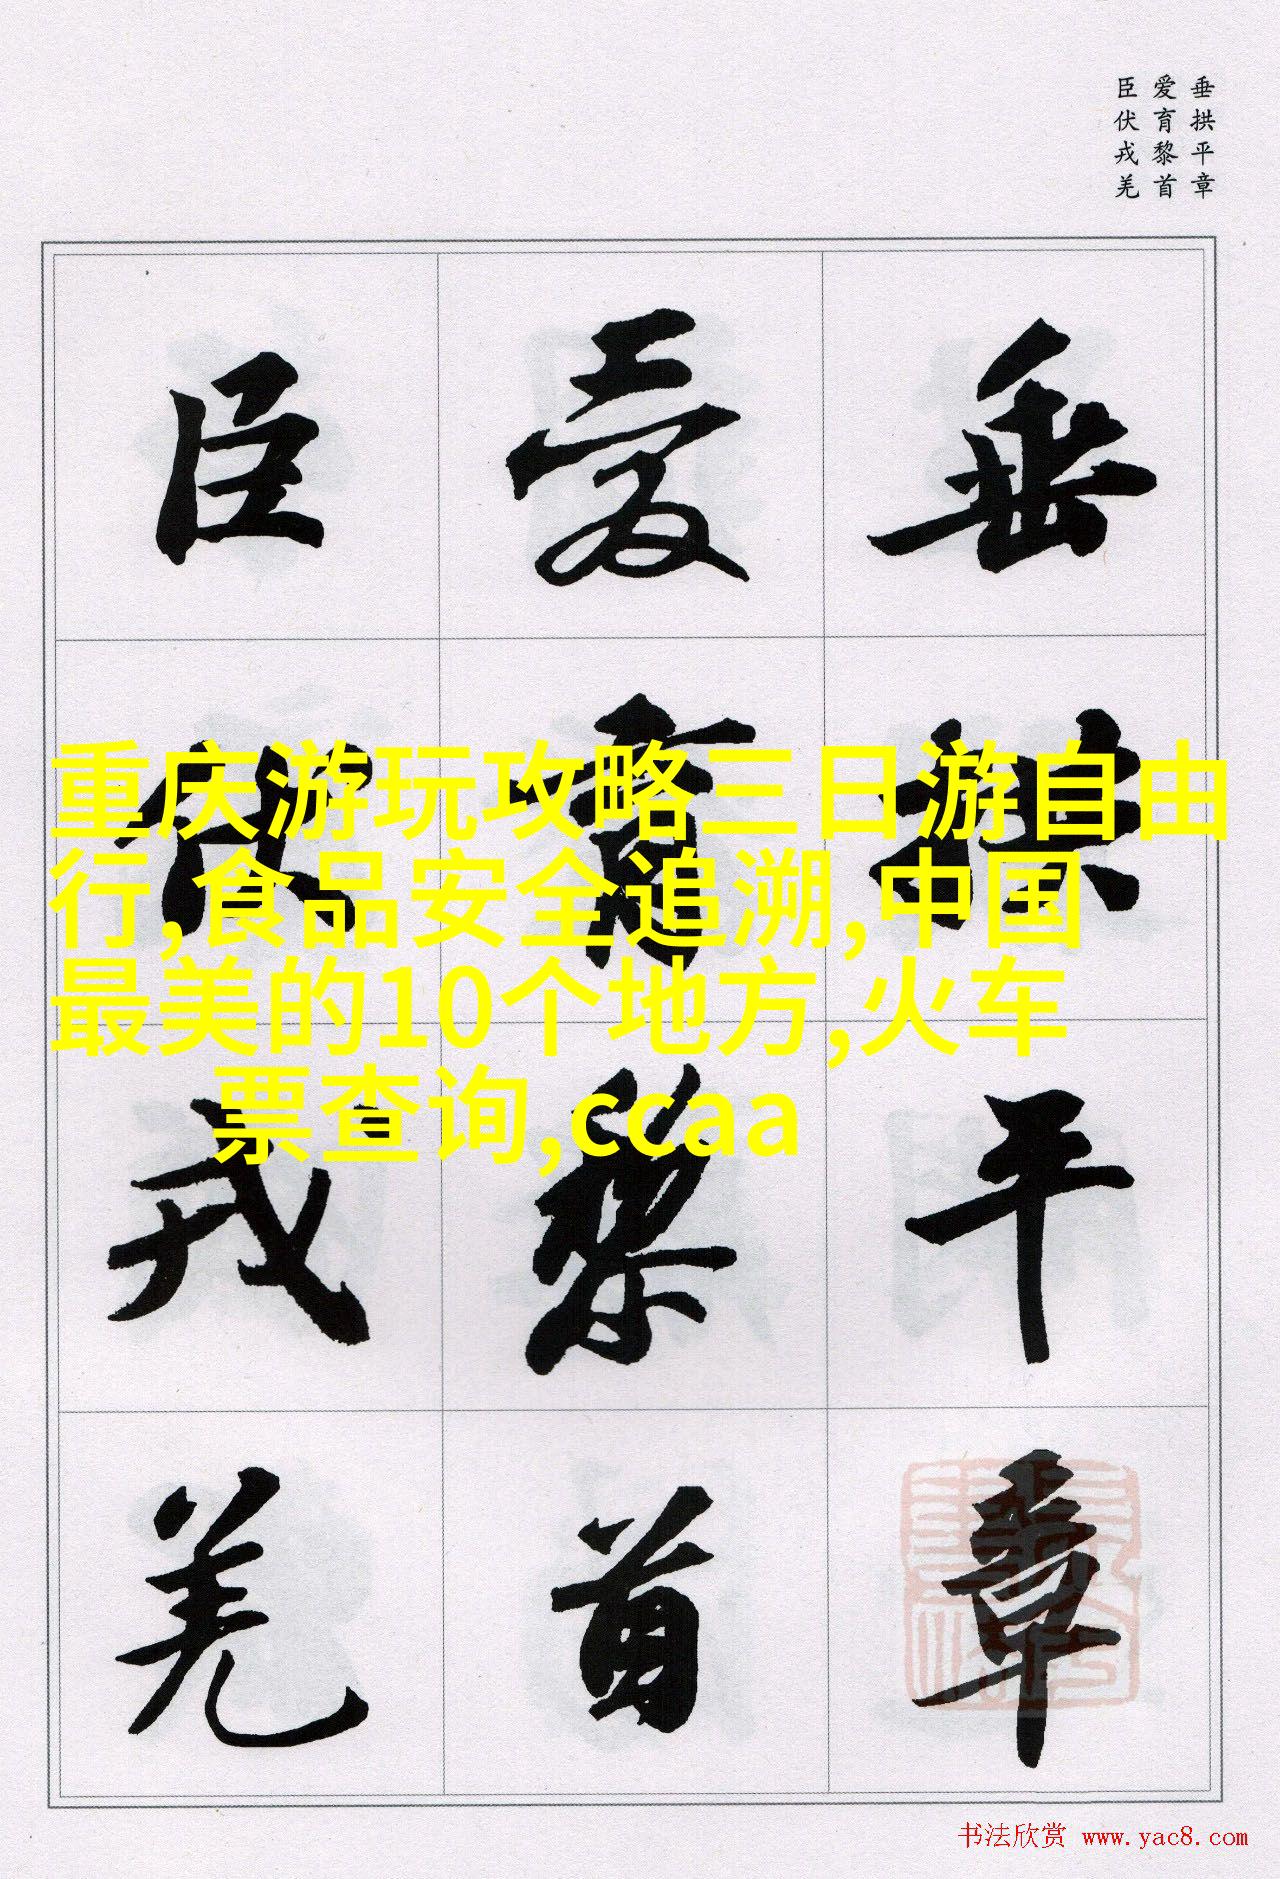 垂拱平章
爱育黎首
臣伏戎羌
垂拱平章
爱育黎首
臣伏戎羌
重庆游玩攻略三日游自由
行,食品安全追溯,中国
最美的10个地方,火车
票查询,ccaa
书法欣赏 www.yac8.com